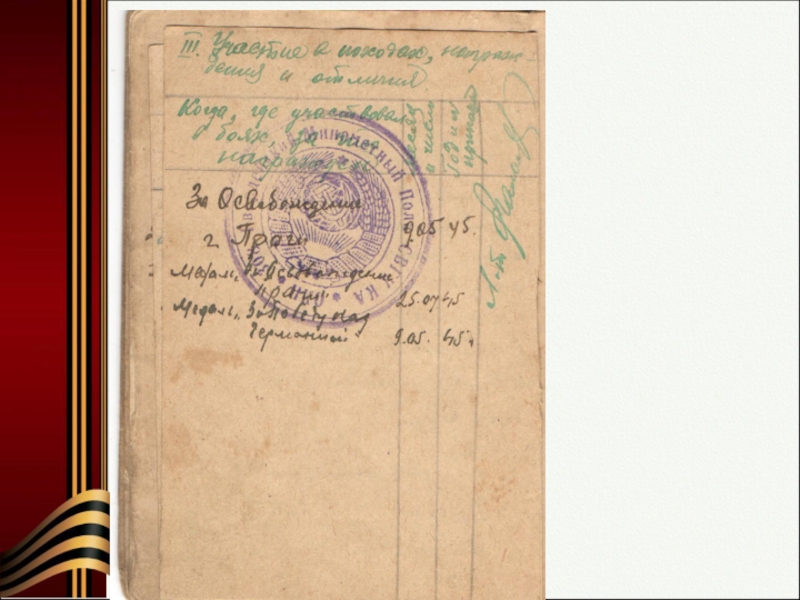 III. Участие в походах, награж-
дения и отличия
Когда, где участвовал
в боях, за что
награжден
месяц
и число
Годин
За Освобождении
г. Праги
9.05 45.
Медаль „За Освобождении
Праги"
25.07 45
Медаль „За Победу над
Германией"
9.05. 45г
Минометный Полк